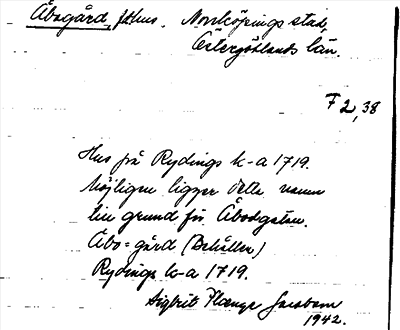 Åbogård, f.d. hus. Norrköpings stad,
Östergötlands län.
F 2, 38
Hus på Rydings k-a 1719.
Möjligen ligger detta namn
till grund för Åbodgatan.
Åbo=gård (Behållen)
Rydings k-a 1719.
Sigbrit Plænge Jacobson
1942.